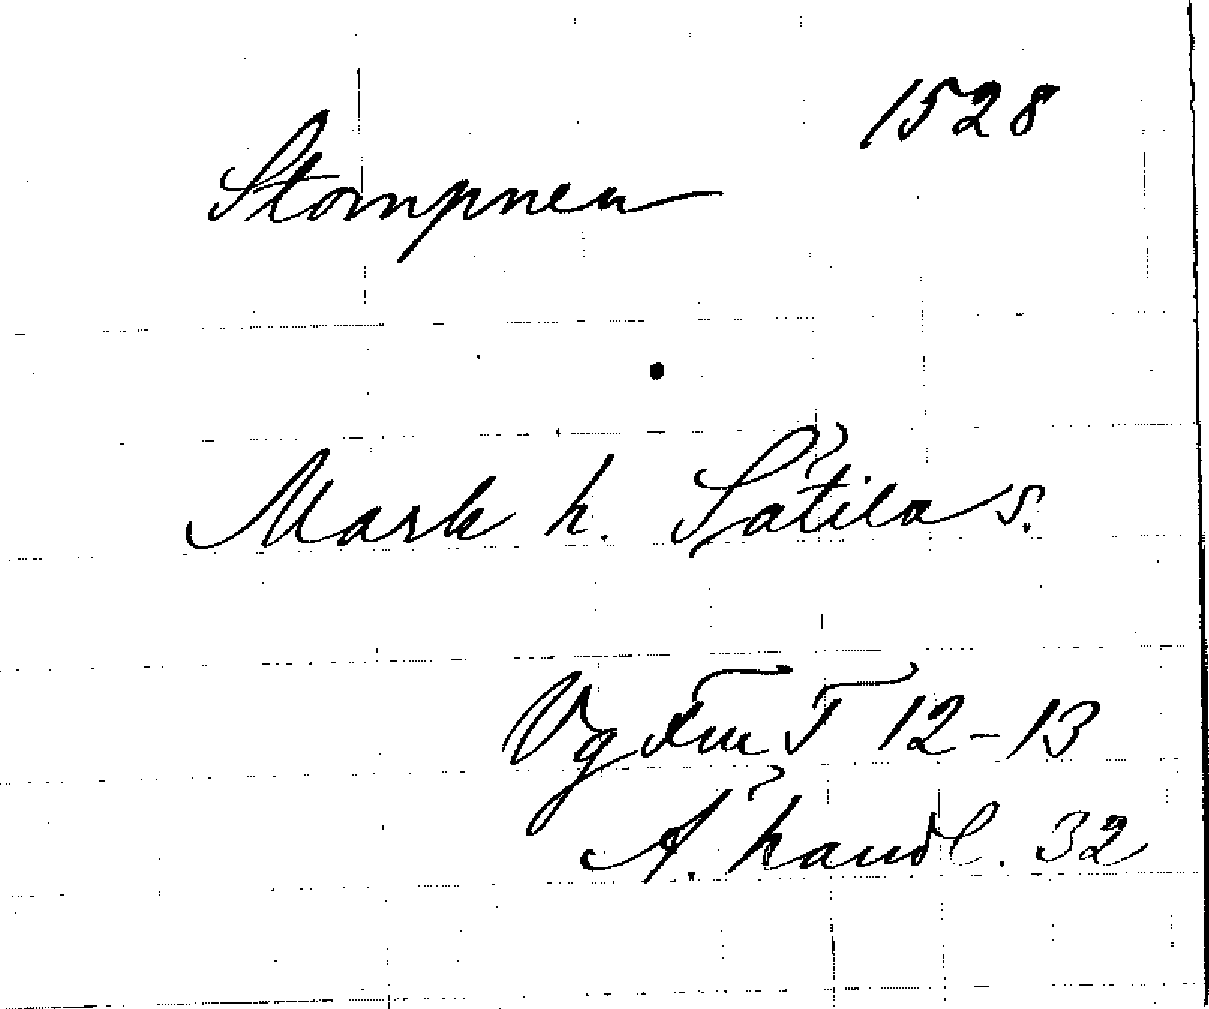 1528
Stompnen
Mark h. Sätila s.
Vg Fm T 12-13
Ä. handl. 32